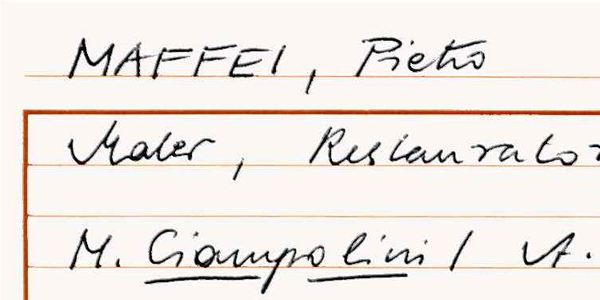 MAFFEI, Pietro
Maler, Restaurator
M. Ciampolini / A.